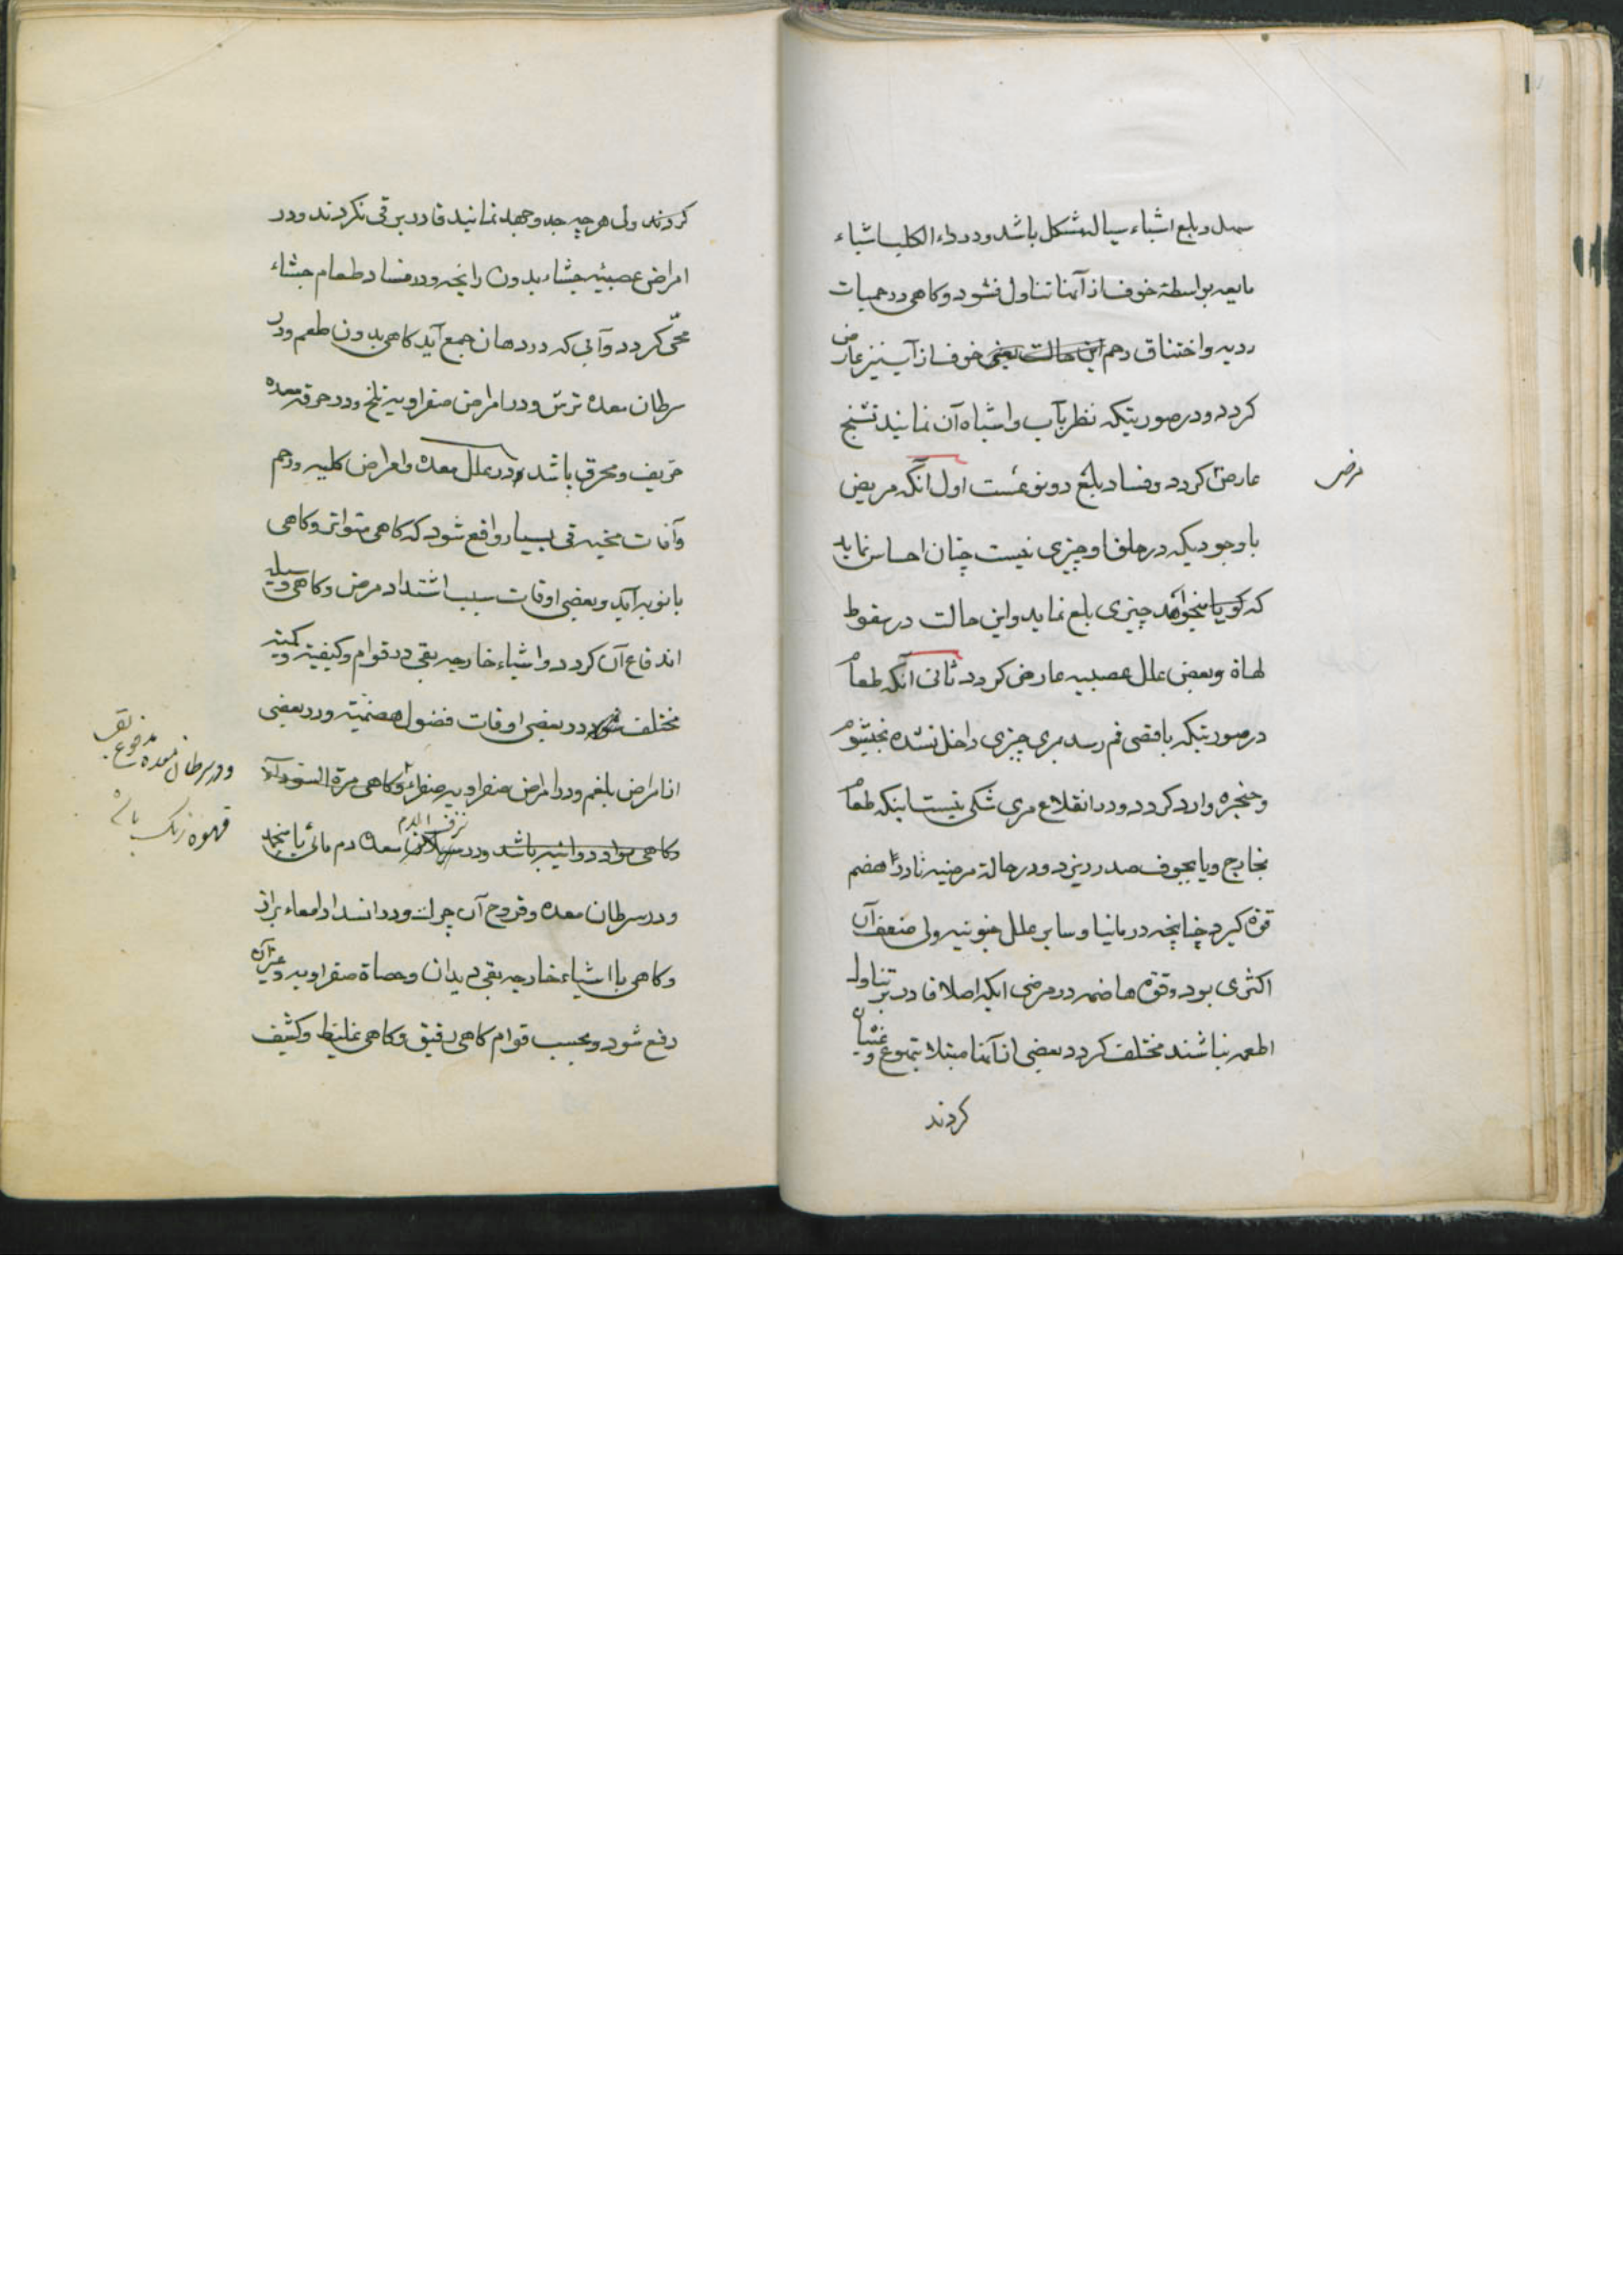 سهل و بلع اشیاء سیاله مشکل باشد و در داء الکلب اشیاء
مایعه بواسطه خوف از آنها تناول نشود و کاهی در حمیات
ردیه و اختناق رحم این حالت یعنی خوف از آب نیز عارض
کردد و در صورتیکه نظر بآب و اشباه آن نمایند تشنج
عارض کردد و فساد بلع دو نوعست اول آنکه مریض
مرض
با وجودیکه در حلق او چیزی نیست چنان احساس نماید
که کویا میخواهد چیزی بلع نماید و این حالت در سقوط
لهاة و بعض علل عصبیه عارض کردد ثانی آنکه طعام
درصورتیکه باقصی فم رسد بمری چیزی داخل نشده بخیشوم
و حنجره وارد کردد و در انقلاع مری شکی نیست اینکه طعام
بخارج و یا بجوف صدر ریزد و در حالة مرضیه نادرا هضم
قوة کیرد چنانچه در مانیا و سایر علل جنونیه ولی ضعف آن
اکثری بود و قوة هاضمه در مرضی انکه اصلا قادر بر تناول
اطعمه نباشند مختلف کردد بعضی از آنها مبتلا بتهوع و غثیان
کردند
کردند ولی هر چه جد و جهد نمایند قادر بر قی نکردند و در
امراض عصبیه جشاء بدون رایحه و در فساد طعام جشاء
محی کردد و آبی که در دهان جمع آید کاهی بدون طعم و در
سرطان معده ترش و در امراض صفراویه تلخ و در حرقة معده
حریف و محرق باشد و در علل معده و امراض کلیه و رحم
و آفات مخیه قی بسیار واقع شود که کاهی متواتر و کاهی
بانوبه آید و بعضی اوقات سبب اشتداد مرض و کاهی وسیله
اندفاع آن کردد و اشیاء خارجه بقی در قوام و کیفیة و کمیة
مختلف شود در بعضی اوقات فضول هضمیة و در بعضی
از امراض بلغم و در امراض صفراویه صفراء و کاهی مرة السوداء
و در سرطان معده مدفوع بقی
قهوه رنگ باشد
و کاهی مواد دوائیه باشد و در نزف الدم معده دم مائی یا منجمد
و در سرطان معده و قروح آن چرک و در انسداد امعاء براز
و کاهی با اشیاء خارجه بقی دیدان و حصاة صفراویه و غیر آن
دفع شود و بحسب قوام کاهی رقیق و کاهی غلیظ و کثیف